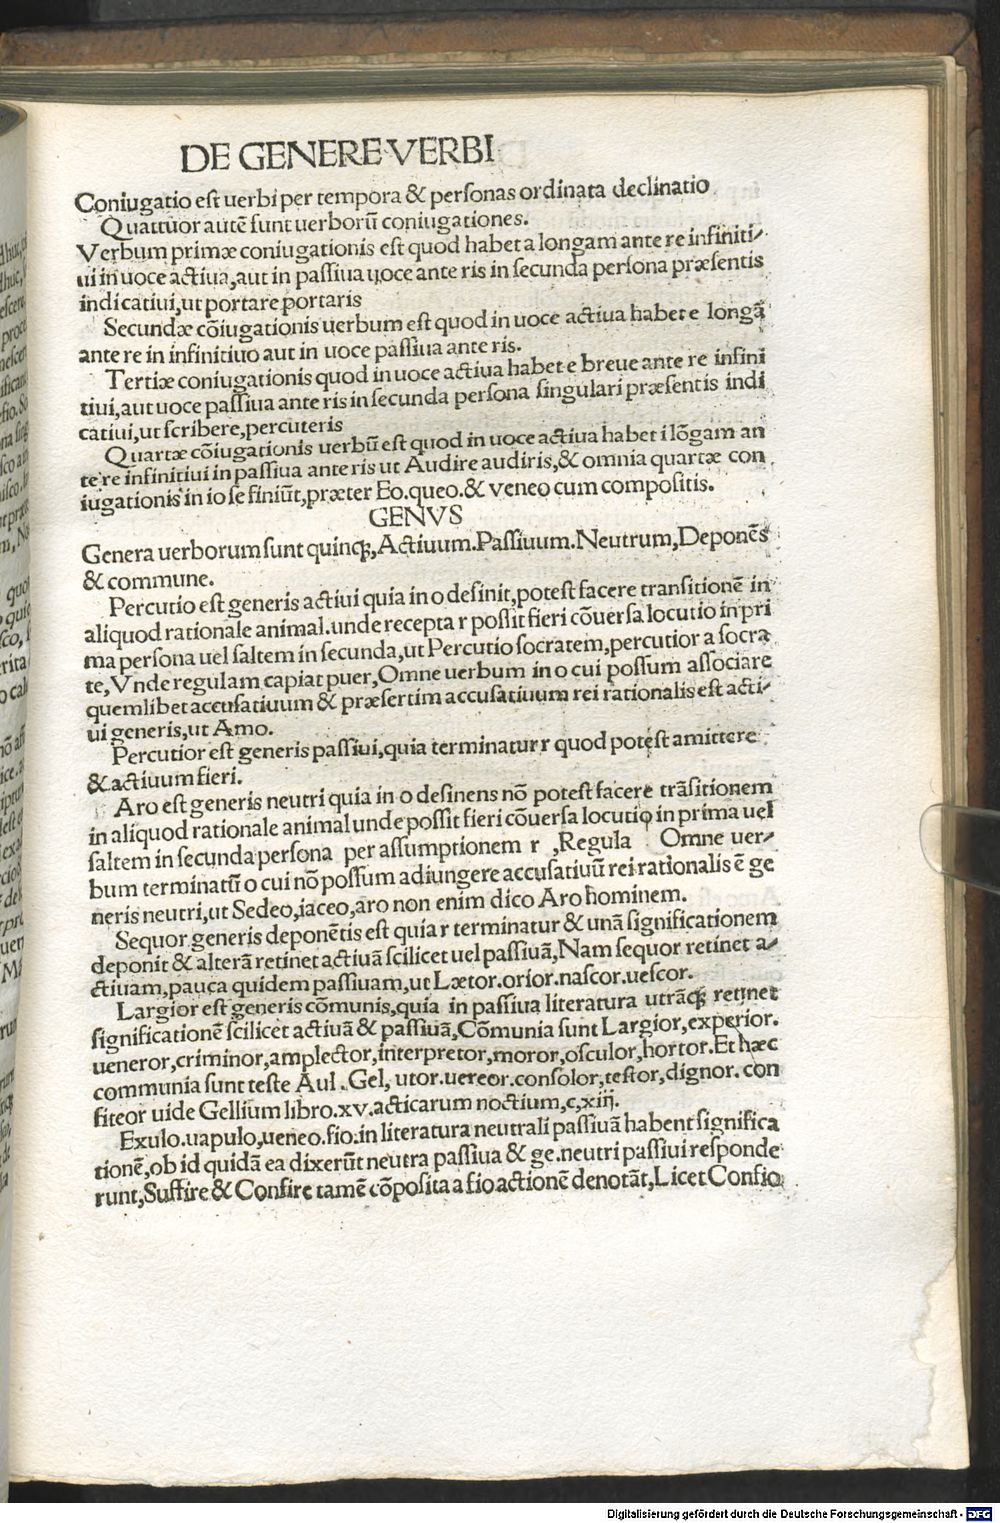 DE GENERE VERBI
Coniugatio est uerbi per tempora & personas ordinata declinatio
Quattuor autē sunt uerborū coniugationes.
Verbum primæ coniugationis est quod habet a longam ante re infiniti/
ui in uoce actiua, aut in passiua uoce ante ris in secunda persona præsentis
indicatiui, ut portare portaris
Secundæ cōiugationis uerbum est quod in uoce actiua habet e longā
ante re in infinitiuo aut in uoce passiua ante ris.
Tertiæ coniugationis quod in uoce actiua habet e breue ante re infini
tiui, aut uoce passiua ante ris in secunda persona singulari præsentis indi
catiui, ut scribere, percuteris
Quartæ cōiugationis uerbū est quod in uoce actiua habet i lōgam an
te re infinitiui in passiua ante ris ut Audire audiris, & omnia quartæ con
iugationis in io se finiūt, præter Eo. queo. & veneo cum compositis.
GENVS
Genera uerborum sunt quinqꝫ, Actiuum. Passiuum. Neutrum, Deponēs
& commune.
Percutio est generis actiui quia in o desinit, potest facere transitionē in
aliquod rationale animal. unde recepta r possit fieri cōuersa locutio in pri
ma persona uel saltem in secunda, ut Percutio socratem, percutior a socra
te, Vnde regulam capiat puer, Omne uerbum in o cui possum associare
quemlibet accusatiuum & præsertim accusatiuum rei rationalis est acti/
ui generis, ut Amo.
Percutior est generis passiui, quia terminatur r quod potest amittere
& actiuum fieri.
Aro est generis neutri quia in o desinens nō potest facere trāsitionem
in aliquod rationale animal unde possit fieri cōuersa locutio in prima uel
saltem in secunda persona per assumptionem r , Regula Omne uer/
bum terminatū o cui nō possum adiungere accusatiuū rei rationalis ē ge
neris neutri, ut Sedeo, iaceo, aro non enim dico Aro hominem.
Sequor generis deponētis est quia r terminatur & unā significationem
deponit & alterā retinet actiuā scilicet uel passiuā, Nam sequor retinet a/
ctiuam, pauca quidem passiuam, ut Lætor. orior. nascor. uescor.
Largior est generis cōmunis, quia in passiua literatura utrāqꝫ retinet
significationē scilicet actiuā & passiuā, Cōmunia sunt Largior, experior.
ueneror, criminor, amplector, interpretor, moror, osculor, hortor. Et hæc
communia sunt teste Aul. Gel, utor. uereor. consolor, testor, dignor. con
fiteor uide Gellium libro. xv. acticarum noctium, c, xiij.
Exulo. uapulo, ueneo. fio. in literatura neutrali passiuā habent significa
tionē, ob id quidā ea dixerūt neutra passiua & ge. neutri passiui responde
runt, Suffire & Confire tamē cōposita a fio actionē denotāt, Licet Confio
Digitalisierung gefördert durch die Deutsche Forschungsgemeinschaft - DFG